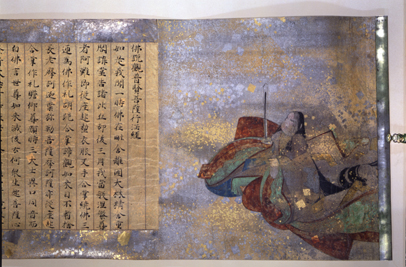 佛説觀普賢菩薩行法經
如是我聞一時佛在毗舍離國大林精舍重
閣講堂告諸比丘却後三月我當般涅槃尊
者阿難即從座起整衣服叉手合掌繞佛三
迊為佛作礼胡跪合掌諦觀如来目不暫捨
長老摩訶迦葉弥勒菩薩摩訶薩亦從座起
合掌作礼瞻仰尊顔時三大士異口同音而
白佛言世尊如来滅後云何衆生起菩薩心